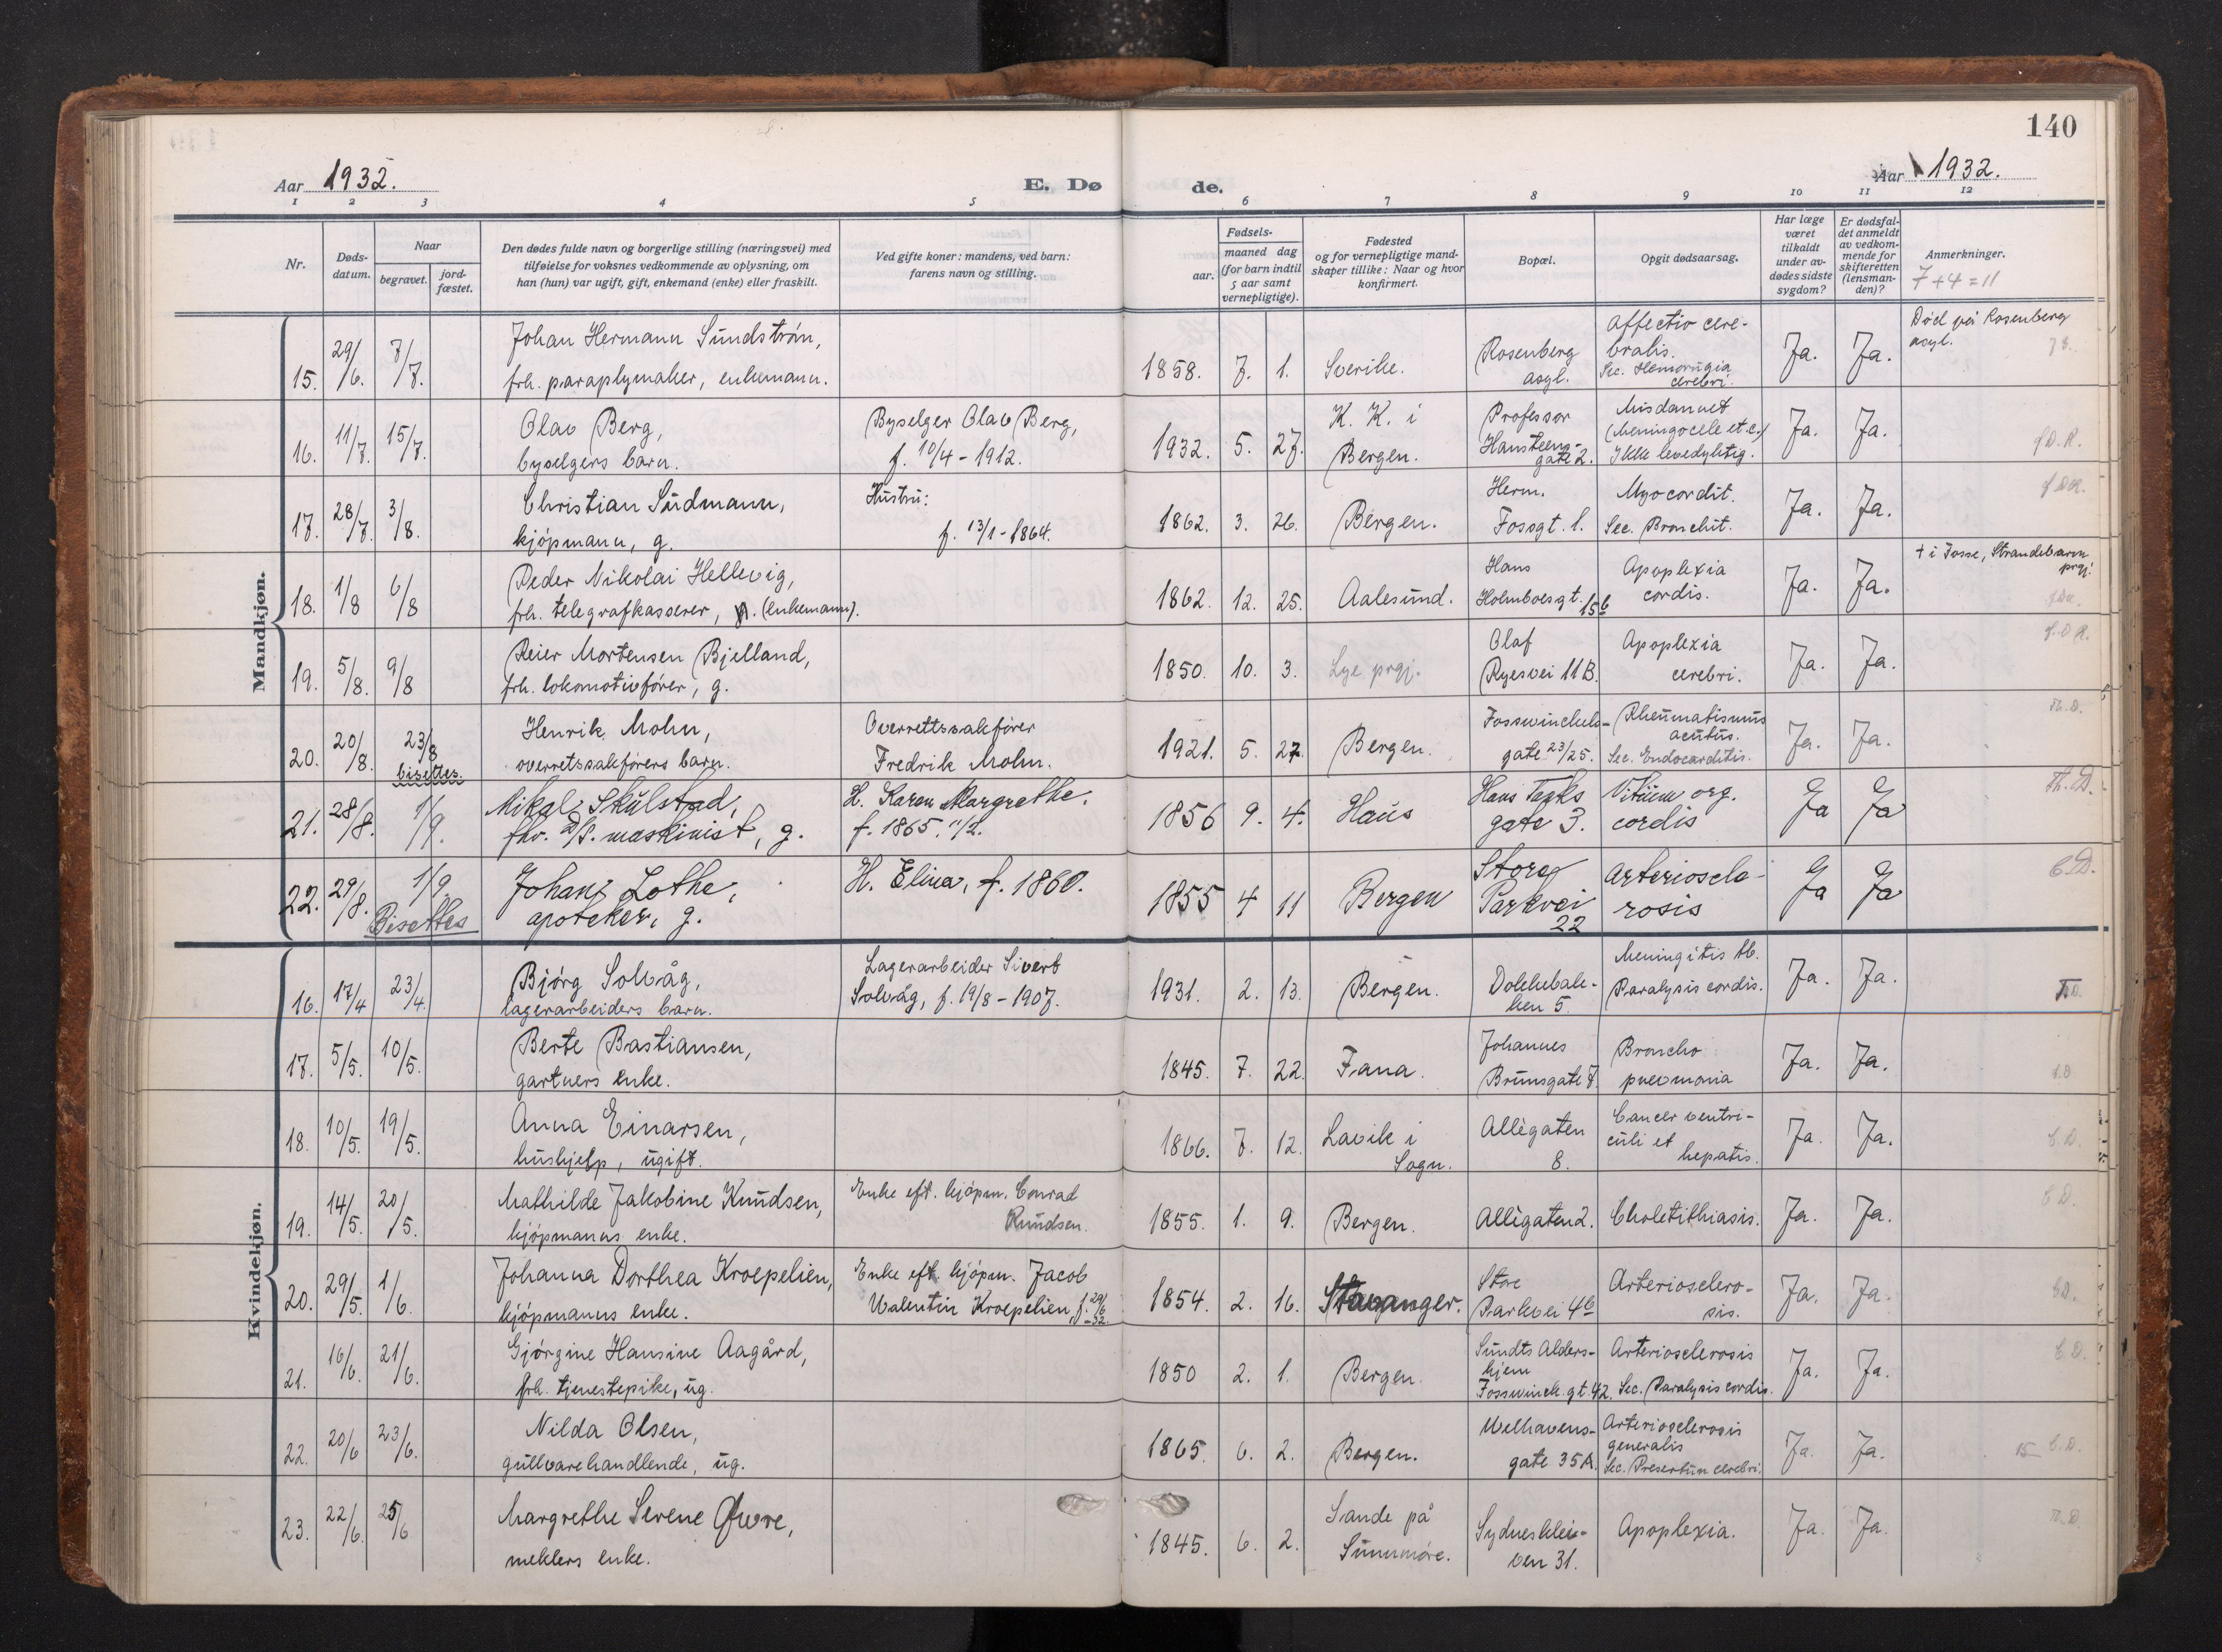 140
Aar 1932.
E. Dø de.
Aar 1932.
1 2 3 4 5 6 7 8 9 10 11 12
Nr.
Døds-
datum.
Naar
begravet.
jord-
fæstet.
Den dødes fulde navn og borgerlige stilling (næringsvei) med
tilføielse for voksnes vedkommende av oplysning, om
han (hun) var ugift, gift, enkemand (enke) eller fraskilt.
Ved gifte koner: mandens, ved barn:
farens navn og stilling.
Fødsels-
aar.
maaned dag
(for barn indtil
5 aar samt
vernepligtige).
Fødested
og for vernepligtige mand-
skaper tillike: Naar og hvor
konfirmert.
Bopæl.
Opgit dødsaarsag.
Har læge
været
tilkaldt
under av-
dødes sidste
sygdom?
Er dødsfal-
det anmeldt
av vedkom-
mende for
skifteretten
(lensman-
den)?
Anmerkninger.
7 + 4 = 11
Mandkjøn.
15. 29/6. 7/7.
Johan Hermann Sundström,
frh. paraplymaker, enkemann.
1858. 7. 1. Sverike.
Rosenberg
asyl.
Affectio cere-
bralis.
Sec. Hemorugia
cerebri.
Ja. Ja.
Død på Rosenberg
asyl.
16. 11/7. 15/7.
Olav Berg,
byselgers barn.
Byselger Olav Berg,
f. 10/4 - 1912.
1932. 5. 27.
K. K. i
Bergen.
Professor
Hansteens-
gate 2.
Misdannet
(Meningocele et.c.)
Ikke levedyktig.
Ja. Ja.
17. 28/7. 3/8.
Christian Sudmann,
kjöpmann, g.
Hustru:
f. 13/1 - 1864.
1862. 3. 26. Bergen.
Herm.
Fossgt. 1.
Myocordit.
Sec. Bronchit.
Ja. Ja.
18. 1/8 6/8
Peder Nikolai Hellevig,
frh. telegrafkasserer, (enkemann).
1862. 12. 25. Aalesund.
Hans
Holmboesgt. 15b
Apoplexia
cordis.
Ja. Ja.
† i Fosse, Strandebarm
prgj.
19. 5/8. 9/8
Reier Mortensen Bjelland,
frh. lokomotivförer, g.
1850. 10. 3. Lye prgj.
Olaf
Ryesvei 11 B.
Apoplexia
cerebri.
Ja. Ja.
20. 20/8. 23/8
bisettes.
Henrik Mohn,
overretssakförers barn.
Overrettssakförer
Fredrik Mohn.
1921. 5. 27. Bergen.
Fosswinckels-
gate 23/25.
Rheumatismus
acutus.
Sec. Endocarditis.
Ja. Ja.
21. 28/8. 1/9.
Mikal Skulstad,
fhv. D/S. maskinist, g.
H. Karen Margrethe.
f. 1865. 11/2.
1856 9. 4. Haus
Hans Tanks
gate 3.
Vitium org.
cordis
Ja Ja
Th. D.
22. 29/8. 1/9.
Bisettes
Johan Lothe,
apoteker, g.
H. Elina, f. 1860.
1855 4 11 Bergen
Store
Parkvei
22
Arterioscle-
rosis
Ja Ja
C. D.
Kvindekjøn.
16. 17/4 23/4.
Bjørg Solvåg,
lagerarbeiders barn.
Lagerarbeider Sivert
Solvåg, f. 19/8 - 1907.
1931. 2. 13. Bergen.
Dokkebak-
ken 5.
Meningitis tb.
Paralysis cordis.
Ja. Ja.
17. 5/5. 10/5.
Berte Bastiansen,
gartners enke.
1845. 7. 22. Fana.
Johannes
Brunsgate 7.
Broncho
pneomonia
Ja. Ja.
18. 10/5. 19/5.
Anna Einarsen,
hushjelp, ugift.
1866. 7. 12.
Lavik i
Sogn.
Allégaten
8.
Cancer ventri-
culi et
hepatis.
Ja. Ja.
C. D.
19. 14/5. 20/5.
Mathilde Jakobine Knudsen,
kjöpmanns enke.
Enke eft. kjöpm. Conrad
Knudsen.
1855. 1. 9. Bergen.
Allégaten 2.
Choletithiasis.
Ja. Ja.
C. D.
20. 29/5. 1/6.
Johanna Dorthea Kroepelien,
kjöpmanns enke.
Enke eft. kjöpm. Jacob
Valentin Kroepelien,
1854. 2. 16. Stavanger.
Store
Parkvei 4b
Arterioselero-
sis.
Ja. Ja.
21. 16/6. 21/6.
Gjörgine Hansine Aagård,
frh. tjenestepike, ug.
1850 2. 1. Bergen.
Sundts Alders-
hjem
Fosswinck.gt. 42.
Arterioselerosis
Sec. Paralysis cordis.
Ja. Ja.
C. D.
22. 20/6 23/6.
Nilda Olsen,
gullvarehandlende, ug.
1865. 6. 2. Bergen.
Welhavens-
gate 35A.
Arterioselerosis
generalis
Ja. Ja.
15 C. D.
23. 22/6. 25/6
Margrethe Serene Øvre,
meklers enke.
1845. 6. 2.
Sande på
Sunnmöre.
Sydneskleiv-
ven 31.
Apoplexia.
Ja. Ja.